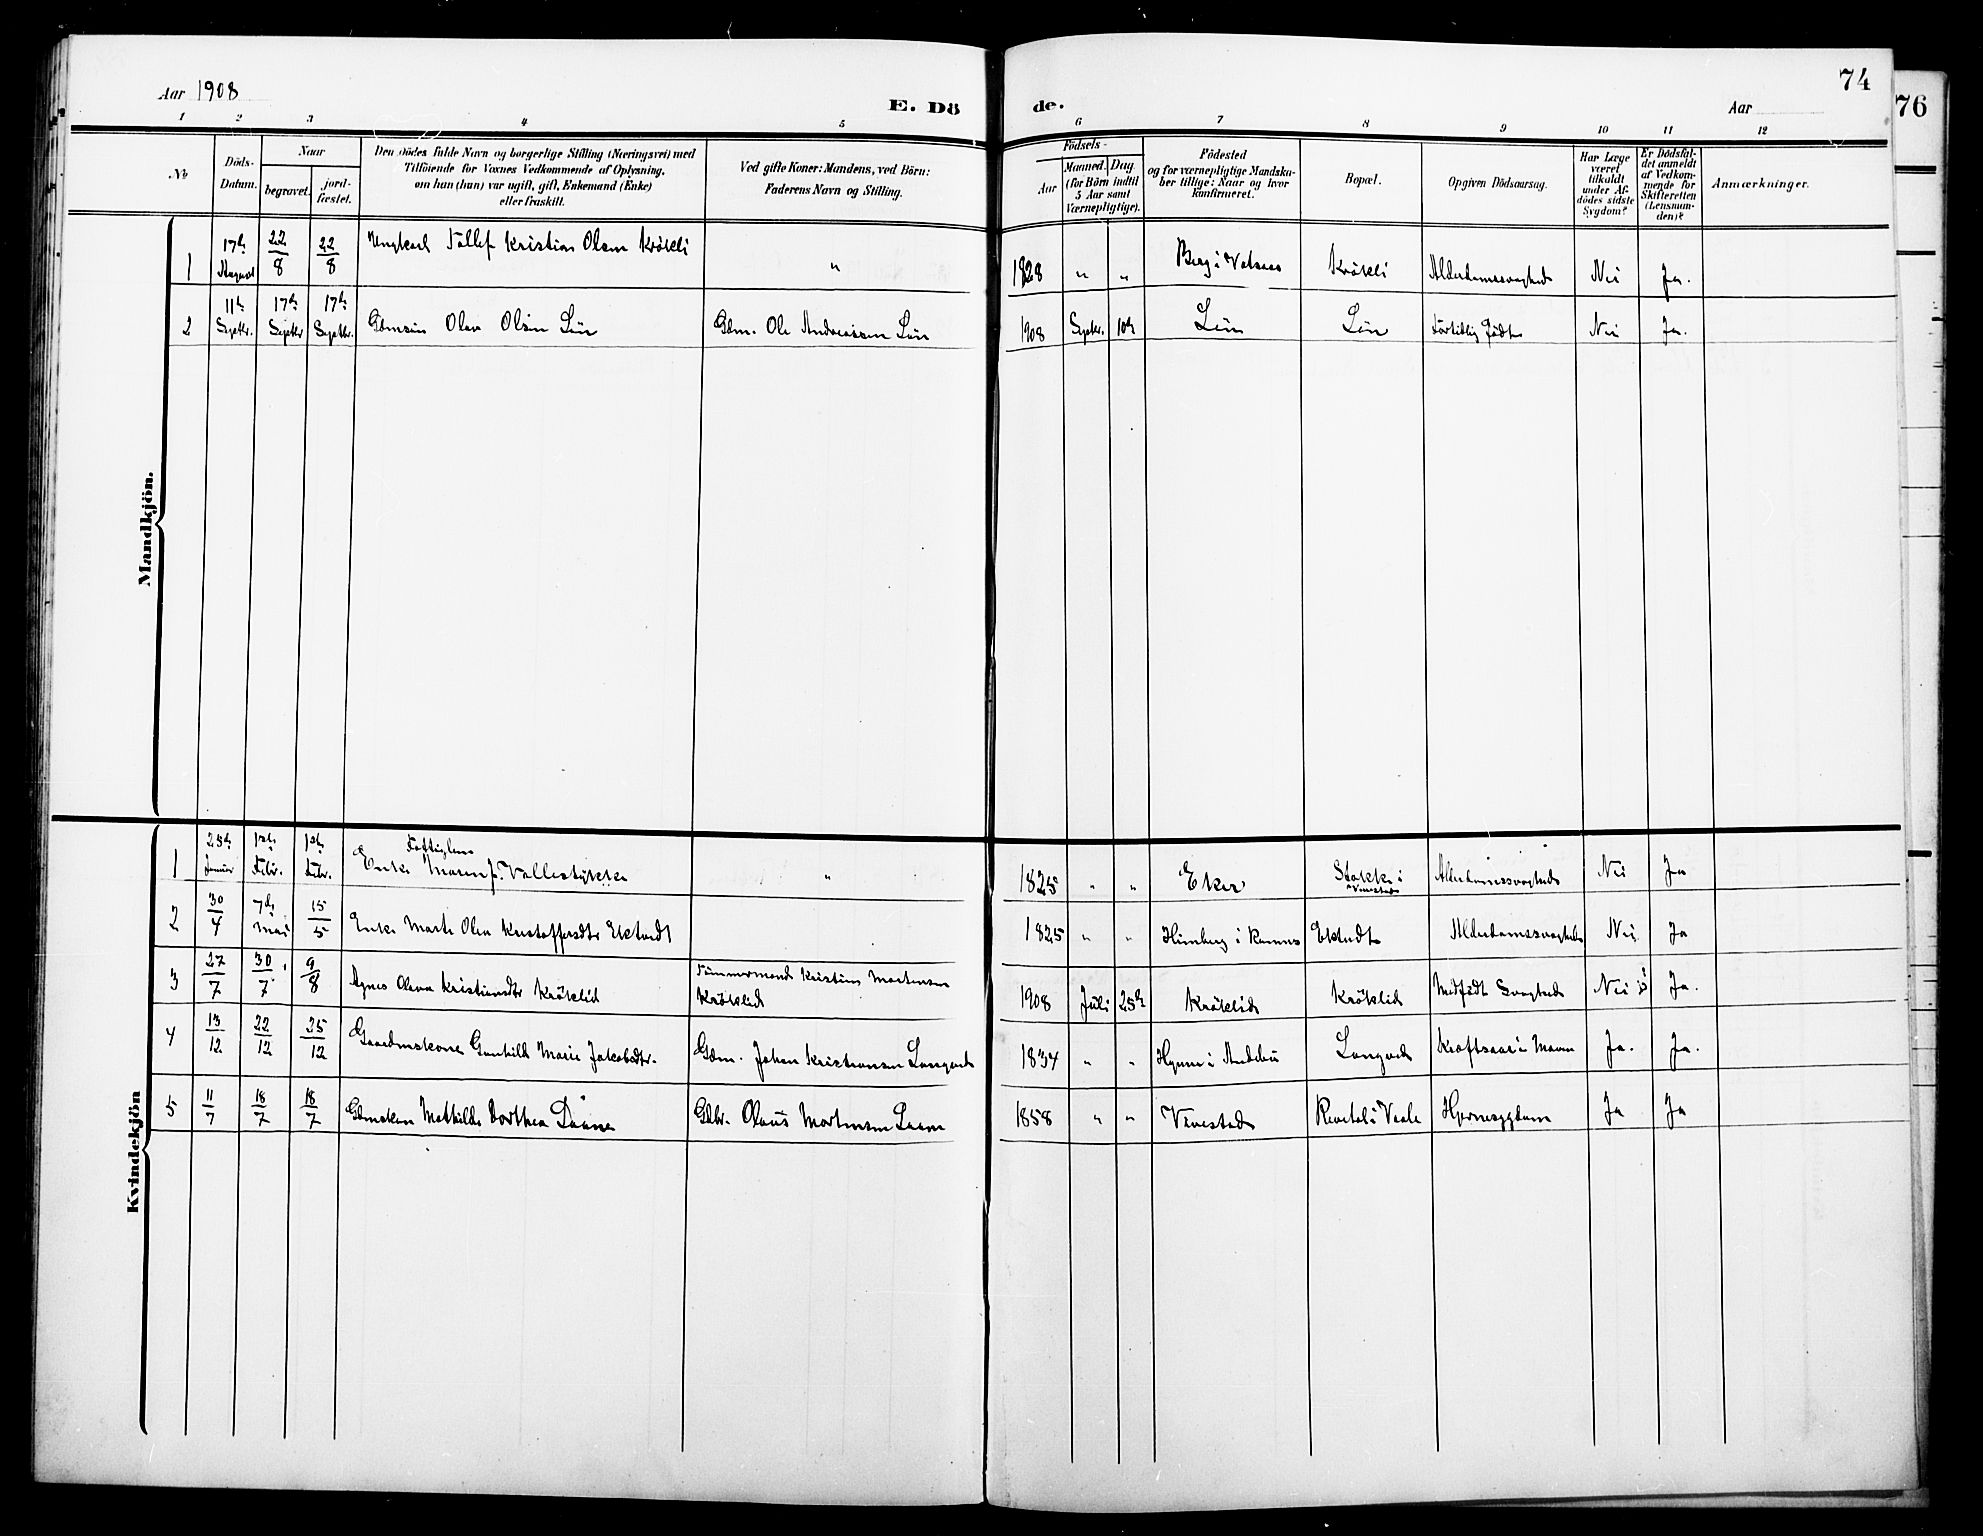 Aar 1908
E. Dö
de.
Aar
74
76
1 2 3 4 5 6 7 8 9 10 11 12
No
Döds-
Datum.
Naar
begravet.
jord-
fæstet.
Den Dödes fulde Navn og borgerlige Stilling (Næringsvei) med
Tilföiende for Voxnes Vedkommende af Oplysning,
om han (hun) var ugift, gift, Enkemand (Enke)
eller fraskilt.
Ved gifte Koner: Mandens, ved Börn:
Faderens Navn og Stilling.
Födsels-
Aar
Maaned. Dag
(for Börn indtil
5 Aar samt
Værnepligtige).
Födested
og for værnepligtige Mandska-
ber tillige: Naar og hvor
konfirmeret.
Bopæl.
Opgiven Dödsaarsag.
Har Læge
været
tilkaldt
under Af-
dödes sidste
Sygdom?
Er Dödsfal-
det anmeldt
af Vedkom-
mende for
Skifteretten
(Lensman-
den)?
Anmærkninger.
Mandkjön.
1 17de August 22/8 22/8 Ungkarl Tollef Kristian Olsen Krökli " 1828 " " Berg i Krökli Alderdomssvaghed Nei Ja.
2 11te Septbr. 17de Septbr 17de Septbr. Gdmsön Olav Olsen Gdm. Ole Andreassen 1908 Septbr. 10de Fortidlig födt Nei Ja.
Kvindekjön
1 25de Januar 1ste Febr. 1ste Febr. Enke Maren Vallestykke " 1825 " " Eker Stokke i Alderdomssvaghed Nei Ja
2 30/4 7de Mai 15/5 Enke Marte Olea Kristoffersdtr 1825 " " Himberg i Ramnes Alderdomssvaghed Nei Ja
3 27/7 30/7 9/8 Agnes Olava Kristiansdtr Kröklid Tömmermand Kristian Martinsen
Kröklid 1908 Juli 25de Kröklid Kröklid Medfödt Svaghed Nei Ja.
4 13/12 22/12 25/12 Gaardmskone Gunhild Marie Jakobsdtr. Gdm. Johan Kristiansen 1834 " " i Andebu Kræftsaar i Maven Ja. Ja.
5 11/7 18/7 18/7 Mathilde Dorthea Gdbr. Olaus Martinsen 1858 " " Vivestad Revetal i Vaale Hjernesygdom Ja Ja